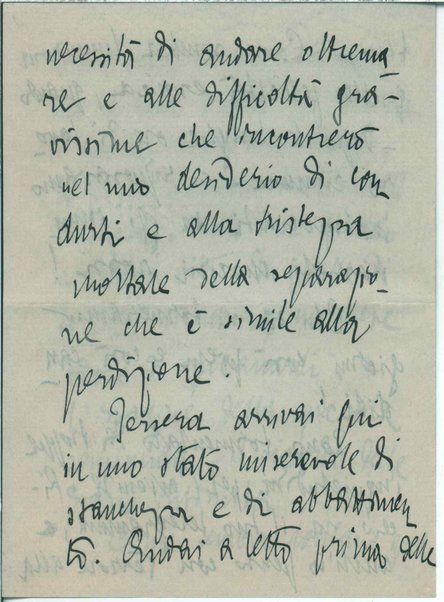 necessità di andare oltrema
re e alle difficoltà gra-
vissime che incontrerò
nel mio desiderio di con
durti e alla tristezza
mortale della separazio-
ne che è simile alla
perdizione.
Iersera arrivai qui
in uno stato miserevole di
stanchezza e di abbattimen
to. Andai a letto prima delle